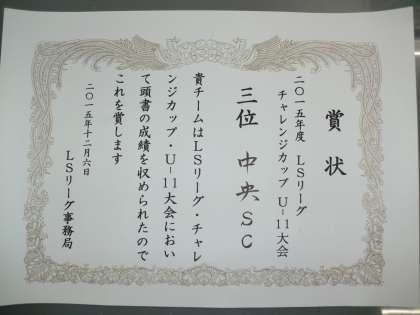 賞状
二〇一五年度 LSリーグ
チャレンジカップ U-11大会
三位 中央SC
貴チームはLSリーグ・チャレ
ンジカップ・U-11大会におい
て頭書の成績を収められたので
これを賞します
二〇一五年十二月六日
LSリーグ事務局